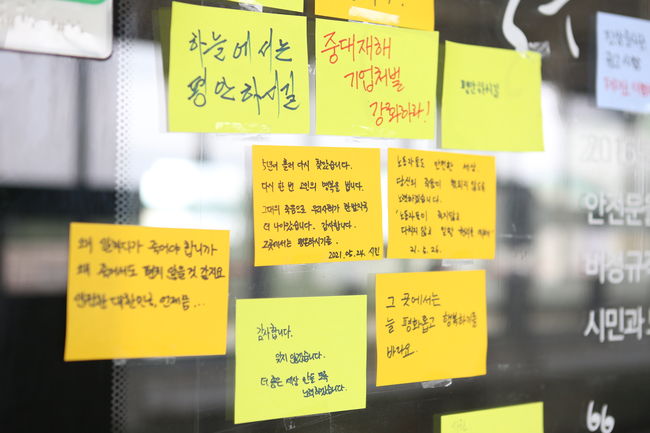 하늘에서는
평안하시길
중대재해
기업처벌
강화하라!
평안하시길
5년이 흘러 다시 찾았습니다.
다시 한 번 고인의 명복을 빕니다.
그대의 죽음으로 우리사회가 한 발자국
더 나아갔습니다. 감사합니다.
그곳에서는 평온하시기를..
2021.05.24. 시민
노동자들도 안전한 세상.
당신의 죽음이 헛되지 않도록
노력하겠습니다.
노동자들이 죽지않고
다치지 않고 일할
21. 5. 26.
왜 일하다가 죽어야 합니까
왜 죽어서도 편치 않을 것 같지요
안전한 대한민국, 언제쯤...
감사합니다.
잊지 않겠습니다.
더 좋은 세상 만들도록
노력하겠습니다.
그 곳에서는
늘 평화롭고 행복하기를
바라요..
2016
안전문
비정규
시민과